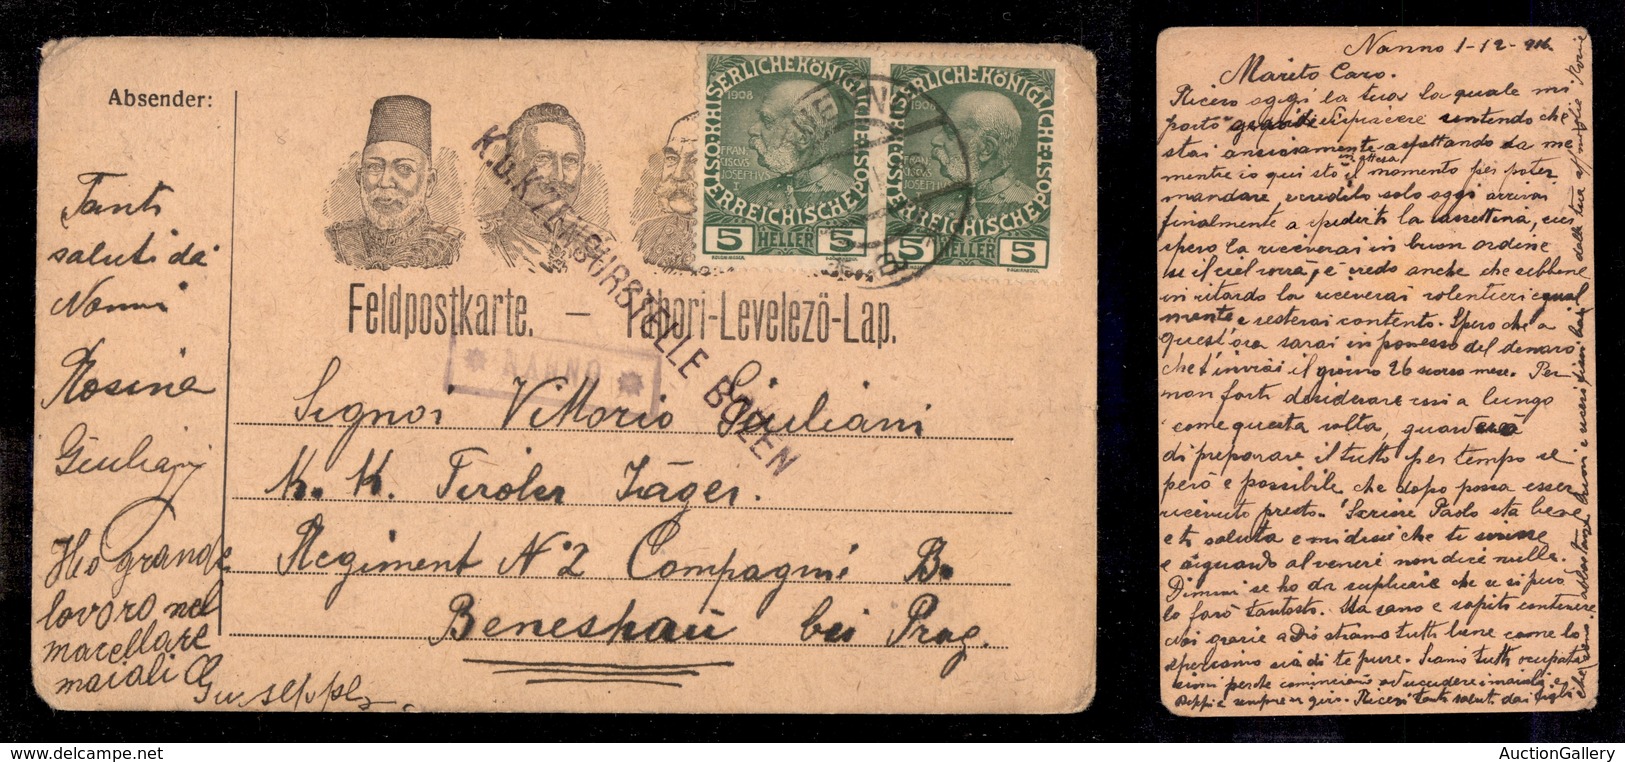 Absender:
Tanti
saluti da
Nanni
Rosina
Giuliani
Ho grande
lavoro nel
macellare
maiali
Giuseppe
KAISERLICHEKÖNIGLICHE ÖSTERREICHISCHE POST
1908
FRAN
CISCVS
IOSEPHVS
I
5 HELLER 5
KAISERLICHEKÖNIGLICHE ÖSTERREICHISCHE POST
1908
FRAN
CISCVS
IOSEPHVS
I
5 HELLER 5
K.u.K. ZENSURSTELLE BOZEN
Feldpostkarte. — Tábori-Levelezö-Lap.
NANNO
Signor Vittorio Giuliani
K. K. Tiroler Jäger.
Regiment N° 2 Compagnie B.
Beneschau bei Prag.
Nanno 1-12-916
Marito Caro.
Ricevo oggi la tua la quale mi
portò grande dispiacere sentendo che
stai ansiosamente aspettando da me
mentre io qui stò in attesa il momento per poter
mandare, solo oggi arrivai
finalmente a spedirti la cassettina,
spero la riceverai in buon ordine
se il ciel vorrà, e credo anche che ebbene
in ritardo la riceverai volentieri egual
mente e resterai contento. Spero che a
quest'ora sarai in possesso del denaro
che t'inviai il giorno 26 scorso mese. Per
non farti desiderare così a lungo
come questa volta, guarderò
di preparare il tutto per tempo se
però è possibile che dopo possa esser
ricevuto presto. Scrisse Paolo sta bene
e ti saluta e mi dice che ti scrisse
e riguardo al venire non dice nulla.
Dimmi se ho da suplicare che se si può
lo farò tantosto. Ma sano e sapiti contenere
Noi grazie a Dio stiamo tutti bene come lo
speriamo sia di te pure. Siamo tutti ocupati
e sempre in giro. Ricevi tanti saluti dai figli
dalla tua moglie Rosina
AuctionGallery